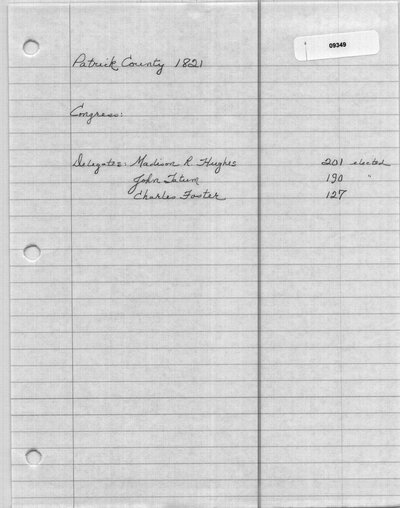 09349
Patrick County 1821
Congress:
Delegates: Madison R. Hughes 201 elected
John Tatum 190 "
Charles Foster 127